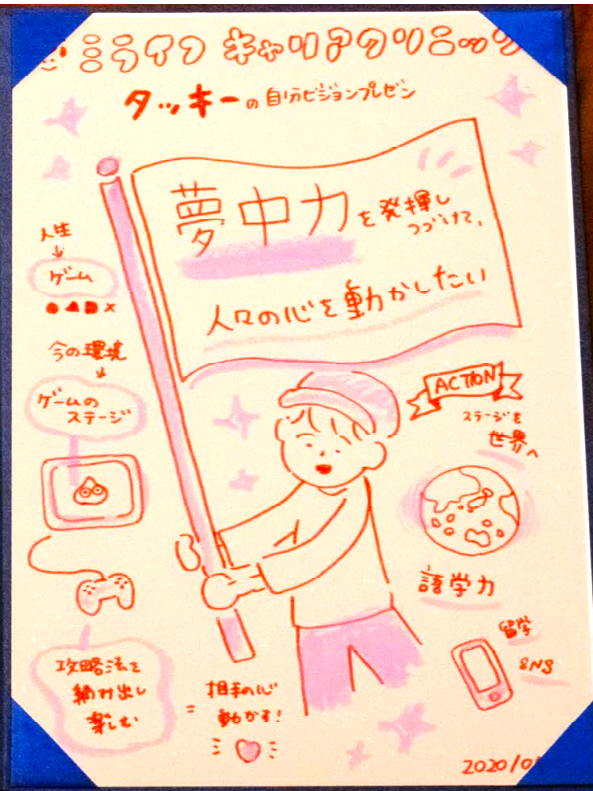 ミライフ キャリアクリニック
タッキーの自分ビジョンプレゼン
夢中力を発揮し
つづけて、
人々の心を動かしたい
人生
↓
ゲーム
●▲■×
今の環境
↓
ゲームの
ステージ
攻略法を
編み出し
楽しむ
=
相手の心
動かす!
ACTION
ステージを
世界へ
語学力
留学
SNS
2020/01